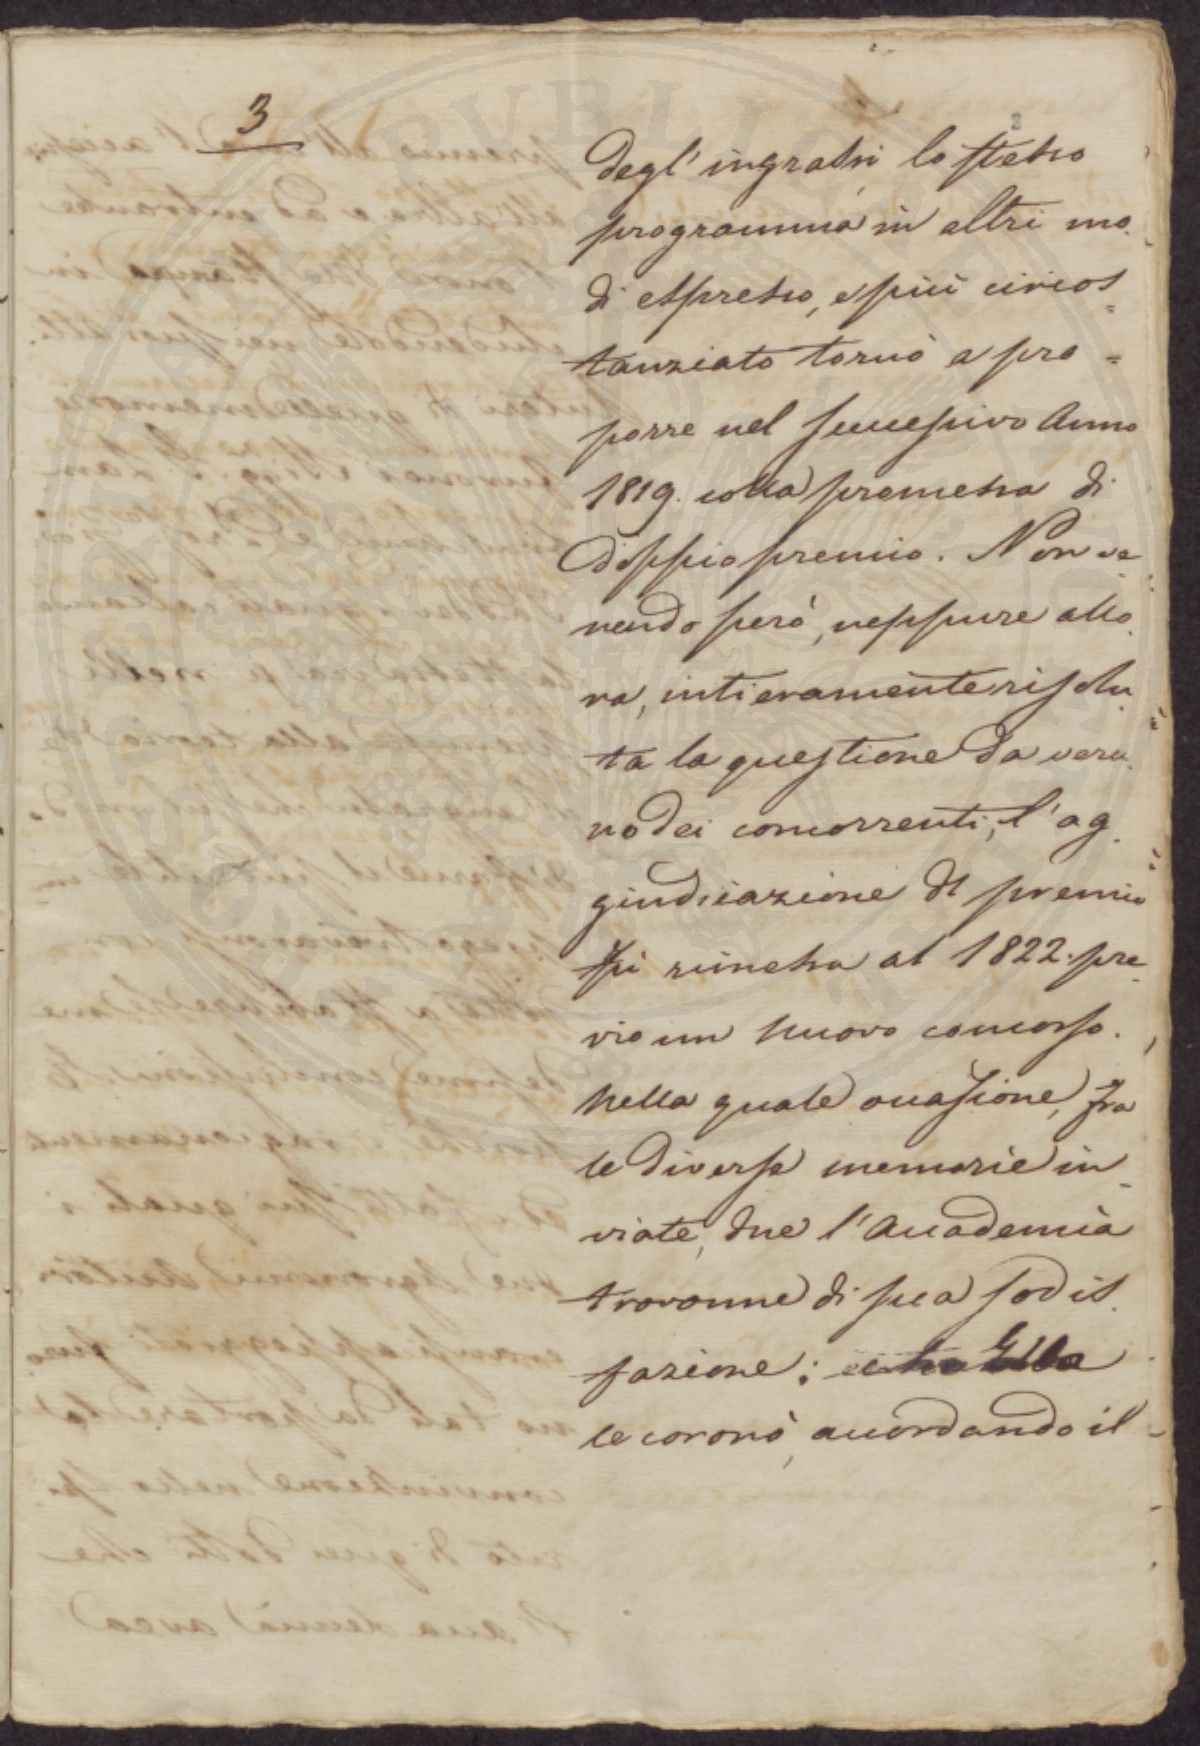 3
2
degl'ingrassi lo stesso
programma in altri mo
di espresso, e più circos=
tanziato tornò a pro=
porre nel successivo Anno
1819. colla promessa di
doppio premio. Non ve
nendo però, neppure allo
ra, intieramente risolu
ta la questione da veru
no dei concorrenti, l'ag
giudicazione del premio
fù rimessa al 1822. pre
vio un nuovo concorso.
Nella quale occasione, fra
le diverse memorie in
viate, due l'Accademia
trovonne di sua sodis
fazione; ed Ella
le coronò, accordando il